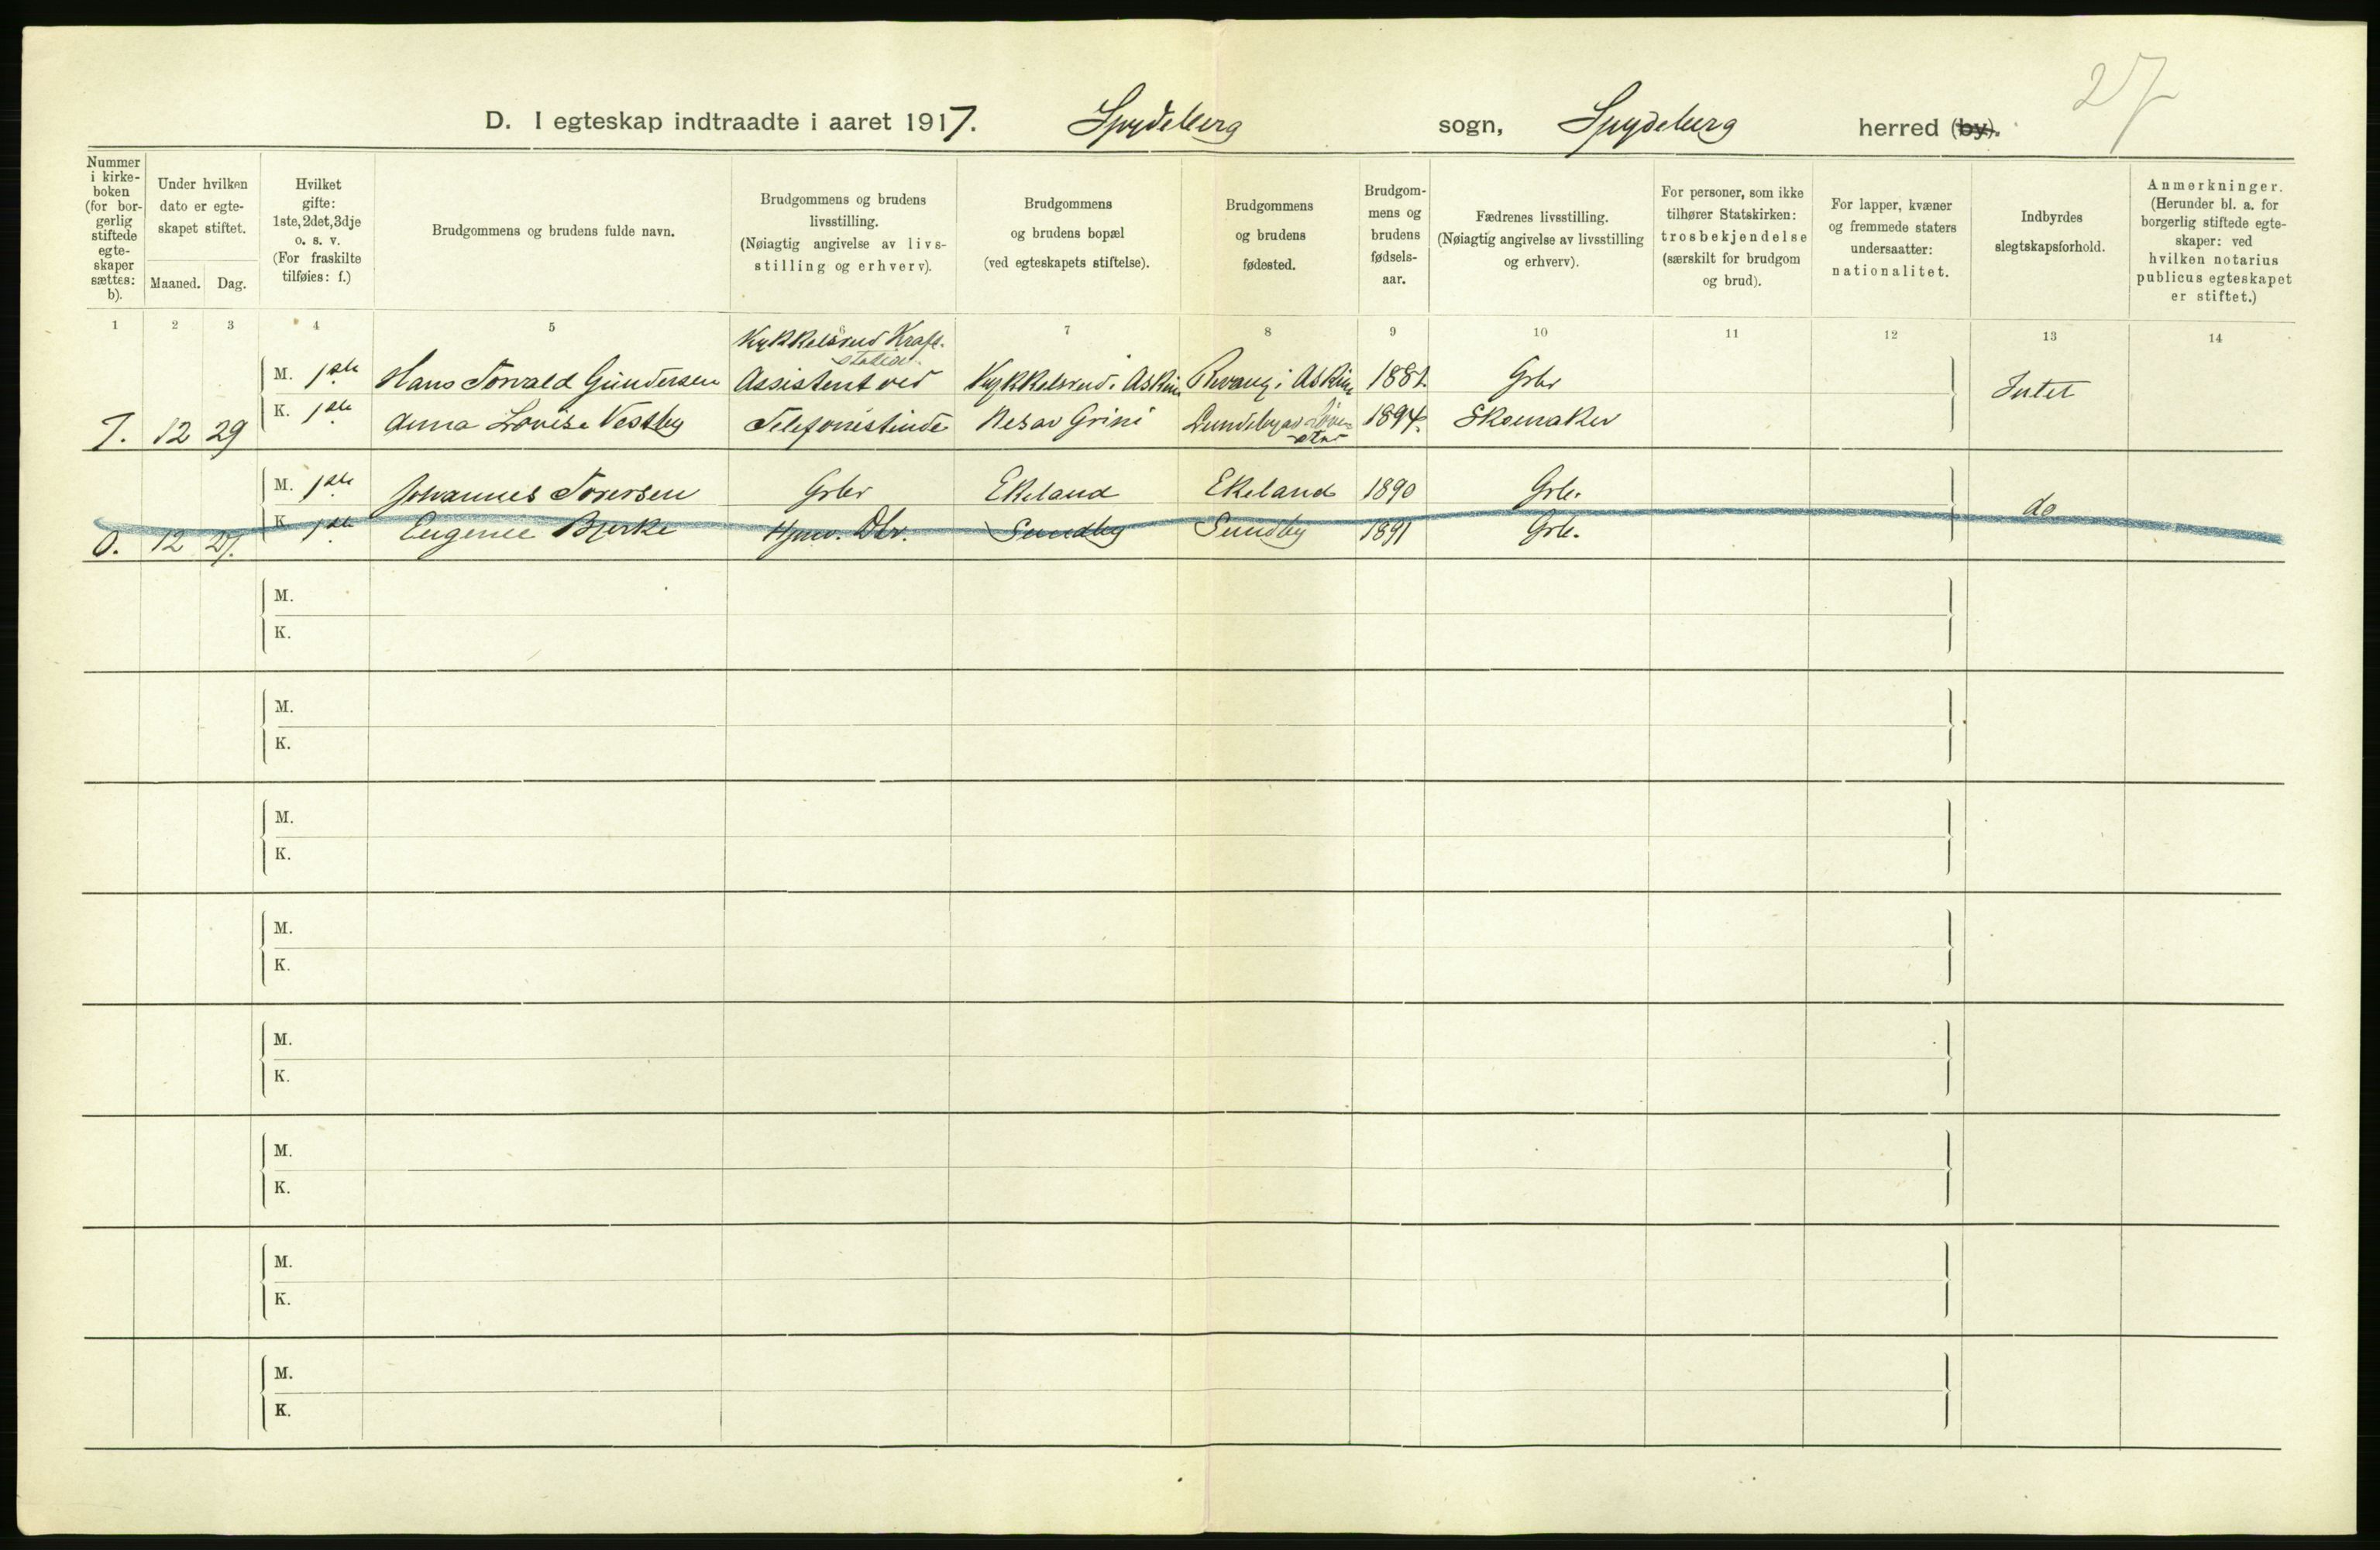 27
D. I egteskap indtraadte i aaret 1917. Spydeberg sogn, Spydeberg herred (by).
Nummer i kirke-boken (for bor-gerlig stiftede egte-skaper sættes: b).
Under hvilken dato er egte-skapet stiftet.
Maaned. Dag.
Hvilket gifte: 1ste, 2det, 3dje o. s. v. (For fraskilte tilføies: f.)
Brudgommens og brudens fulde navn.
Brudgommens og brudens livsstilling. (Nøiagtig angivelse av livs-stilling og erhverv).
Brudgommens og brudens bopæl (ved egteskapets stiftelse).
Brudgommens og brudens fødested.
Brudgom-mens og brudens fødsels-aar.
Fædrenes livsstilling. (Nøiagtig angivelse av livsstilling og erhverv).
For personer, som ikke tilhører Statskirken: trosbekjendelse (særskilt for brudgom og brud).
For lapper, kvæner og fremmede staters undersaatter: nationalitet.
Indbyrdes slegtskapsforhold.
Anmerkninger. (Herunder bl. a. for borgerlig stiftede egte-skaper: ved hvilken notarius publicus egteskapet er stiftet.)
1 2 3 4 5 6 7 8 9 10 11 12 13 14
Kykkelsrud Kraft-
station.
M. 1ste Hans Torvald Gundersen Assistent ved Kykkelsrud i Askim i Askim 1881 Grbr Intet
7. 12 29 K. 1ste Anna Lovise Vestby Telefonistinde Nes av Grini 1894. Skomaker
M. 1ste Johannes Toversen Grbr Ekeland Ekeland 1890 Grb. do
12 27. K. 1ste Eugenie Bjerke Sundby Sundby 1891 Grb.
M.
K.
M.
K.
M.
K.
M.
K.
M.
K.
M.
K.
M.
K.
M.
K.